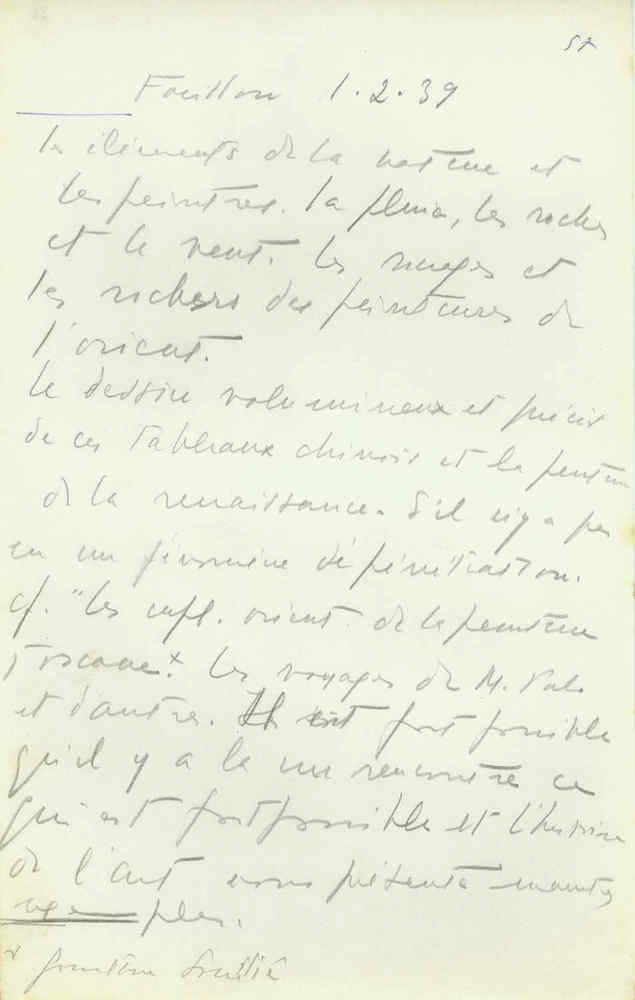 57
Focillon 1.2.39
les éléments de la nature et
les peintres. la pluie, les roches
et le vent. les nuages et
les rochers des peintures de
l'orient.
le dessin volumineux et précis
de ces tableaux chinois et la peinture
de la renaissance. S'il n'y a pas
eu un fénomène de pénétration.
cf. "les infl. orient. de la peinture
toscane.x les voyages de M. Polo
et d'autres. Il est fort possible
qu'il y a là une rencontre ce
qui est fort possible et l'histoire
de l'art nous présente maints
exemples.
x Soulié